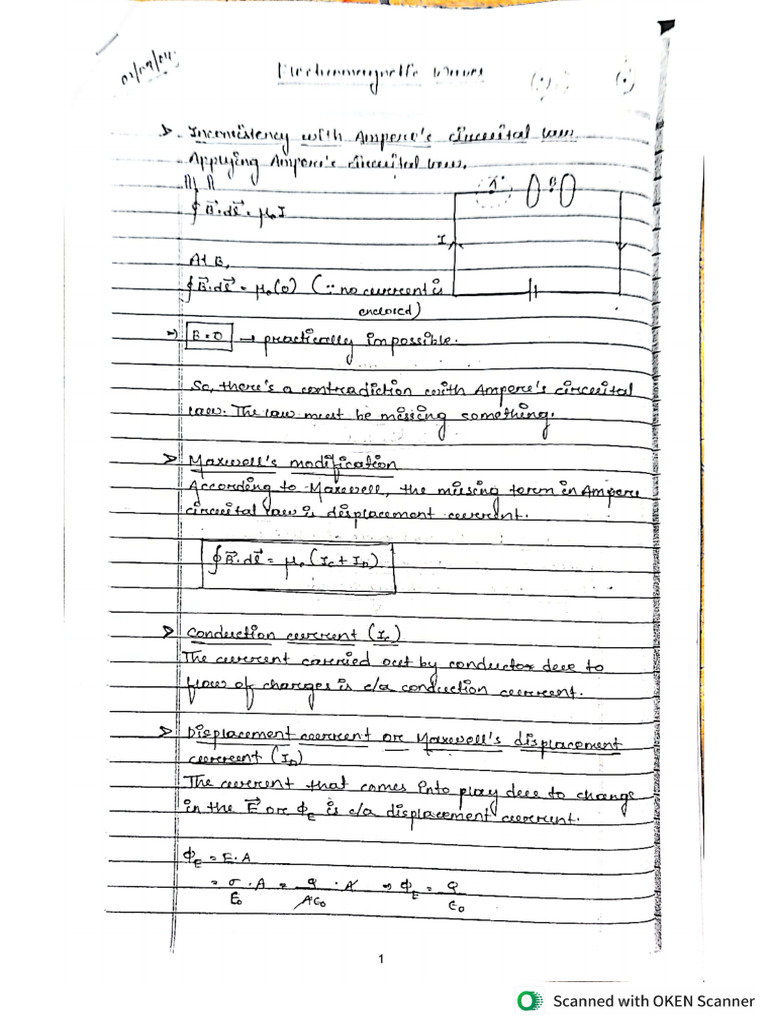 Electromagnetic Waves
Inconsistency with Ampere's circuital law
Applying Ampere's circuital law,
At A
∮B⃗·dl⃗ = μ₀I
A B
I
At B,
∮B⃗·dl⃗ = μ₀(0) (∵ no current is
enclosed)
⇒ B=0 → practically impossible.
So, there's a contradiction with Ampere's circuital
law. The law must be missing something.
Maxwell's modification
According to Maxwell, the missing term in Ampere
circuital law is displacement current.
∮B⃗·dl⃗ = μ₀(I_C + I_D)
Conduction current (I_C)
The current carried out by conductor due to
flow of charges is c/a conduction current.
Displacement current or Maxwell's displacement
current (I_D)
The current that comes into play due to change
in the E⃗ or ϕ_E is c/a displacement current.
ϕ_E = E·A
= σ/ε₀ ·A = q/Aε₀ · A ⇒ ϕ_E = q/ε₀
1
Scanned with OKEN Scanner